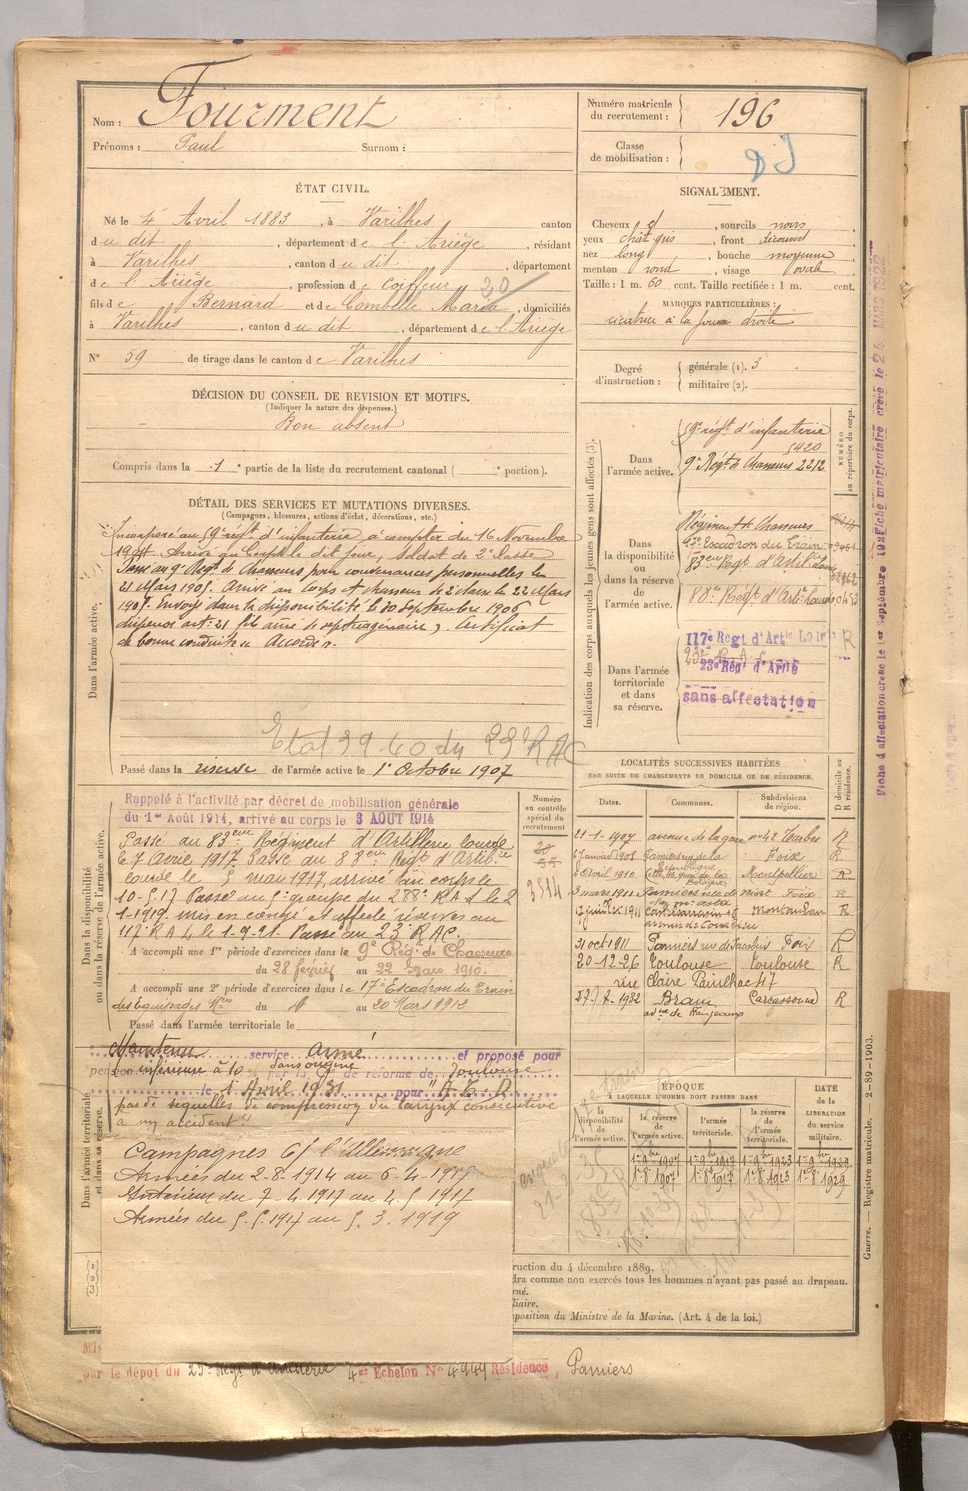 Nom : Fourment
Prénoms : Paul Surnom :
Numéro matricule du recrutement : 196
Classe de mobilisation :
ÉTAT CIVIL.
Né le 4 Avril 1883, à Varilhes canton
du dit, département de l'Ariège, résidant
à Varilhes, canton du dit, département
de l'Ariège, profession de coiffeur 20
fils de Bernard et de Combelle Maria domiciliés
à Varilhes, canton du dit, département de l'Ariège
N° 39 de tirage dans le canton de Varilhes
SIGNALEMENT.
Cheveux, sourcils noirs
yeux chât. gris, front découvert
nez long, bouche moyenne
menton rond, visage ovale
Taille : 1 m. 60 cent. Taille rectifiée : 1 m. cent.
MARQUES PARTICULIÈRES :
cicatrice à la joue droite
Degré d'instruction : générale (1). 3
militaire (2).
DÉCISION DU CONSEIL DE REVISION ET MOTIFS.
(Indiquer la nature des dispenses.)
Bon absent
Compris dans la 1e partie de la liste du recrutement cantonal ( e portion).
DÉTAIL DES SERVICES ET MUTATIONS DIVERSES.
(Campagnes, blessures, actions d'éclat, décorations, etc.)
Dans l'armée active.
Incorporé au 59e régt d'infanterie à compter du 16 Novembre
1904. Arrivé au Corps le dit jour, soldat de 2e classe
Passé au 9e Régt de Chasseurs pour convenances personnelles le
21 Mars 1905. Arrivé au Corps et chasseur de 2e classe le 22 Mars
1905. Envoyé dans la disponibilité le 30 Septembre 1906
dispensé art. 21 fils aîné de septuagénaire. Certificat
de bonne conduite Accordé.
Etat 39 40 du 23e RAC
Passé dans la réserve de l'armée active le 1er Octobre 1907
Indication des corps auxquels les jeunes gens sont affectés (3).
NUMÉRO au répertoire du corps.
Dans l'armée active.
59e régt d'infanterie
5420
9e Régt de Chasseurs 2212
Dans la disponibilité ou dans la réserve de l'armée active.
Régiment de Chasseurs
Escadron du Train
83eme Régt d'Artil. Lourde
88e Régt d'Art. Lourde
Dans l'armée territoriale et dans sa réserve.
117e Régt d'Artie Lourde R
23e Rég d'Artie
sans affectation
Fiche matriculaire créée le 24 MARS 1922
Dans la disponibilité ou dans la réserve de l'armée active.
Rappelé à l'activité par décret de mobilisation générale
du 1er Août 1914, arrivé au corps le 3 AOUT 1914
Passé au 83eme Régiment d'Artillerie lourde
le 7 Avril 1917. Passé au 88eme Régt d'Artil.ie
lourde le 5 mai 1917, arrivé au corps le
10-5-17 Passé au 5e groupe du 288e R.A.L le 2
1-1919, mis en congé et affecté réserves au
117e R A L le 1-9-21. Passé au 23e R.AC.
A accompli une 1re période d'exercices dans le 9e Régt de Chasseurs
du 28 février au 22 Mars 1910.
A accompli une 2e période d'exercices dans le 17e Escadron du Train
des Equipages Mres du 4 au 20 Mars 1912
Passé dans l'armée territoriale le
Numéro au contrôle spécial du recrutement
3514
LOCALITÉS SUCCESSIVES HABITÉES
PAR SUITE DE CHANGEMENTS DE DOMICILE OU DE RÉSIDENCE.
Dates. Communes. Subdivisions de région. D domicile ou R résidence.
21-1-1907 avenue de la gare no 42 Tarbes R
janvier 1908 Pamiers Foix R
avril 1910 Cette, Montpellier R
3 mars 1911 Pamiers Foix R
1911 Castelsarrasin Montauban R
31 oct 1911 Pamiers rue des Jacobins Foix R
20-12-26 Toulouse Toulouse R
rue Claire Pauilhac 47
27-7-1932 Bram Carcassonne R
Dans l'armée territoriale et dans sa réserve.
Maintenu service armé et proposé pour
pension inférieure à 10 % par la Con de réforme de Toulouse
sans origine
le 1 Avril 1931 pour "A.T.R
pas de séquelles de compression du larynx consécutive
à un accident"
Campagnes c/ l'Allemagne
Armées du 2-8-1914 au 6-4-1917
Intérieur du 7-4-1917 au 4-5-1917
Armées du 5-5-1917 au 5.3.1919
ÉPOQUE
À LAQUELLE L'HOMME DOIT PASSER DANS
la disponibilité de l'armée active. la réserve de l'armée active. l'armée territoriale. la réserve de l'armée territoriale.
DATE de la LIBÉRATION du service militaire.
1er 9bre 1907 1er 9bre 1917 1er 9bre 1923 1er 9bre 1929
1er 8bre 1907 1er 8bre 1917 1er 8bre 1923 1er 8bre 1929
ruction du 4 décembre 1889.
dra comme non exercés tous les hommes n'ayant pas passé au drapeau.
rné.
iliaire.
position du Ministre de la Marine. (Art. 4 de la loi.)
(1)
(2)
(3)
Guerre. — Registre matricule. — 2-89-1903.
par le dépôt du 23e Régt d'Artillerie 4er Echelon No 4949 Résidence, Pamiers